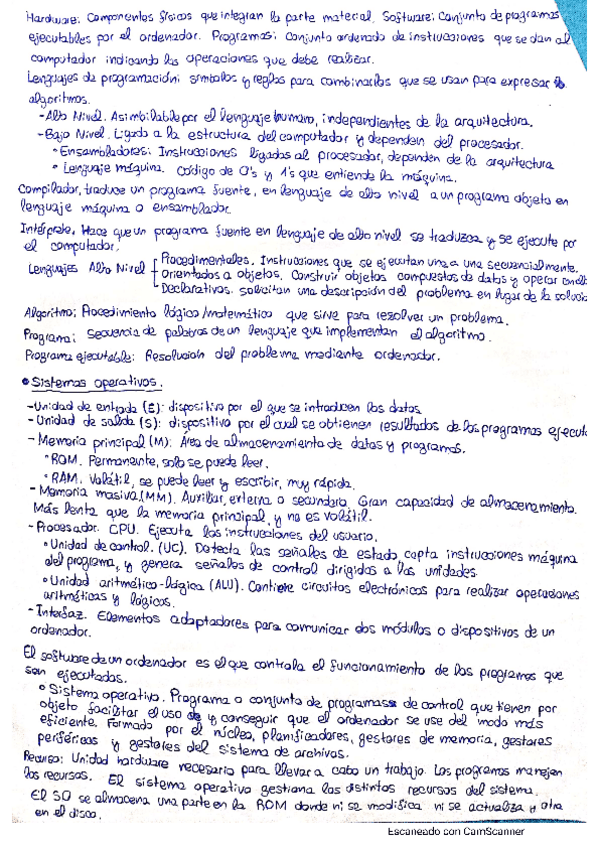 Hardware: Componentes físicos que integran la parte material. Software: Conjunto de programas
ejecutables por el ordenador. Programas: Conjunto ordenado de instrucciones que se dan al
computador indicando las operaciones que debe realizar.
Lenguajes de programación: símbolos y reglas para combinarlos que se usan para expresar
algoritmos.
-Alto Nivel. Asimbilable por el lenguaje humano, independientes de la arquitectura.
-Bajo Nivel. Ligado a la estructura del computador y dependen del procesador.
• Ensambladores: Instrucciones ligadas al procesador, dependen de la arquitectura
• Lenguaje máquina. Código de 0's y 1's que entiende la máquina.
Compilador, traduce un programa fuente, en lenguaje de alto nivel a un programa objeto en
lenguaje máquina o ensamblador
Intérprete. Hace que un programa fuente en lenguaje de alto nivel se traduzca y se ejecute por
el computador.
Lenguajes Alto Nivel
Procedimentales. Instrucciones que se ejecutan una a una secuencialmente.
Orientados a objetos. Construir objetos compuestos de datos y operar
Declarativos. solicitan una descripción del problema en lugar de la solució
Algoritmo: Procedimiento lógico/matemático que sirve para resolver un problema.
Programa: Secuencia de palabras de un lenguaje que implementan el algoritmo.
Programa ejecutable: Resolución del problema mediante ordenador.
• Sistemas operativos.
-Unidad de entrada (E): dispositivo por el que se introducen los datos
-Unidad de salida (S): dispositivo por el cual se obtienen resultados de los programas ejecut
-Memoria principal (M): Área de almacenamiento de datos y programas.
• ROM. Permanente, solo se puede leer.
• RAM. Volátil, se puede leer y escribir, muy rápida.
-Memoria masiva (MM). Auxiliar, externa o secundaria. Gran capacidad de almacenamiento.
Más lenta que la memoria principal, y no es volátil.
-Procesador. CPU. Ejecuta las instrucciones del usuario.
• Unidad de control. (UC). Detecta las señales de estado, capta instrucciones máquina
del programa, y genera señales de control dirigidos a las unidades.
• Unidad aritmético-lógica (ALU). Contiene circuitos electrónicos para realizar operaciones
aritméticas y lógicas.
-Interfaz. Elementos adaptadores para comunicar dos módulos o dispositivos de un
ordenador.
El software de un ordenador es el que controla el funcionamiento de los programas que
son ejecutados.
• Sistema operativo. Programa o conjunto de programas de control que tienen por
objeto facilitar el uso y conseguir que el ordenador se use del modo más
eficiente. Formado por el núcleo, planificadores, gestores de memoria, gestores
periféricos y gestores del sistema de archivos.
Recurso: Unidad hardware necesario para llevar a cabo un trabajo. Los programas manejan
los recursos. El sistema operativo gestiona los distintos recursos del sistema.
El SO se almacena una parte en la ROM donde ni se modifica ni se actualiza y otra
en el disco.
Escaneado con CamScanner